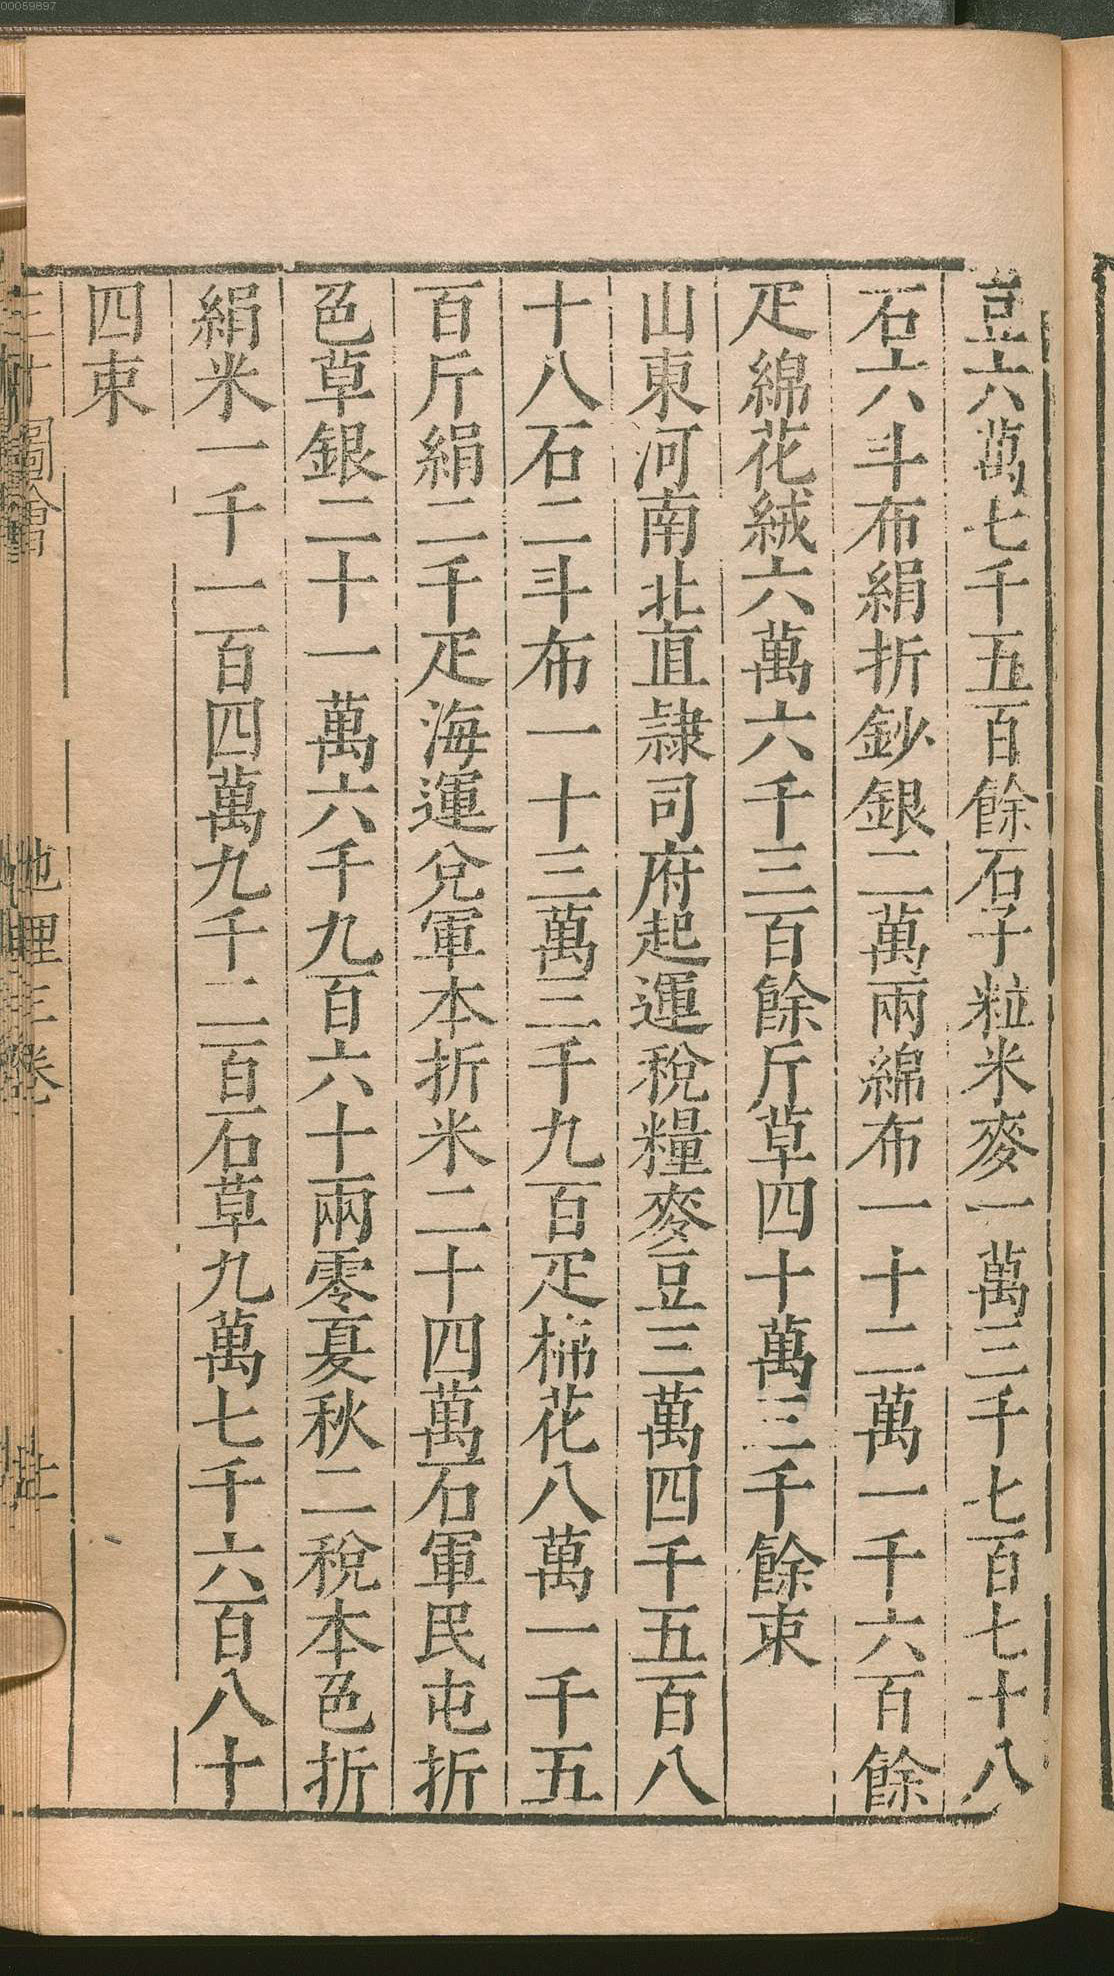 豆六萬七千五百餘石子粒米麥一萬三千七百七十八
石六斗布絹折鈔銀二萬兩綿布一十二萬一千六百餘
疋綿花絨六萬六千三百餘斤草四十萬三千餘束
山東河南北直隷司府起運稅糧麥豆三萬四千五百八
十八石二斗布一十三萬三千九百疋棉花八萬一千五
百斤絹二千疋海運兌軍本折米二十四萬石軍民屯折
色草銀二十一萬六千九百六十兩零夏秋二稅本色折
絹米一千一百四萬九千二百石草九萬七千六百八十
四束
三才圖會
地理三卷
00059897